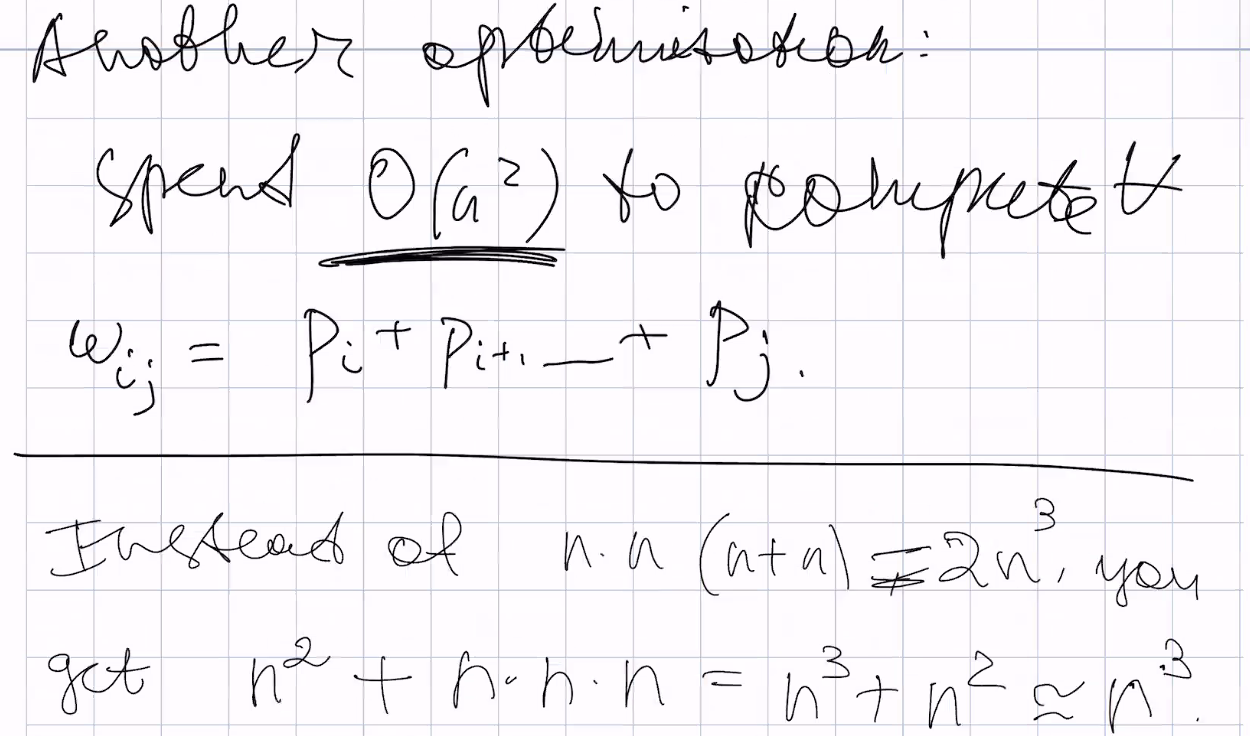 Another optimisation:
Spend O(n²) to compute ∀
wᵢⱼ = pᵢ + pᵢ₊₁ — + pⱼ.
Instead of n·n (n+n) = 2n³, you
get n² + n·n·n = n³ + n² ≃ n³.